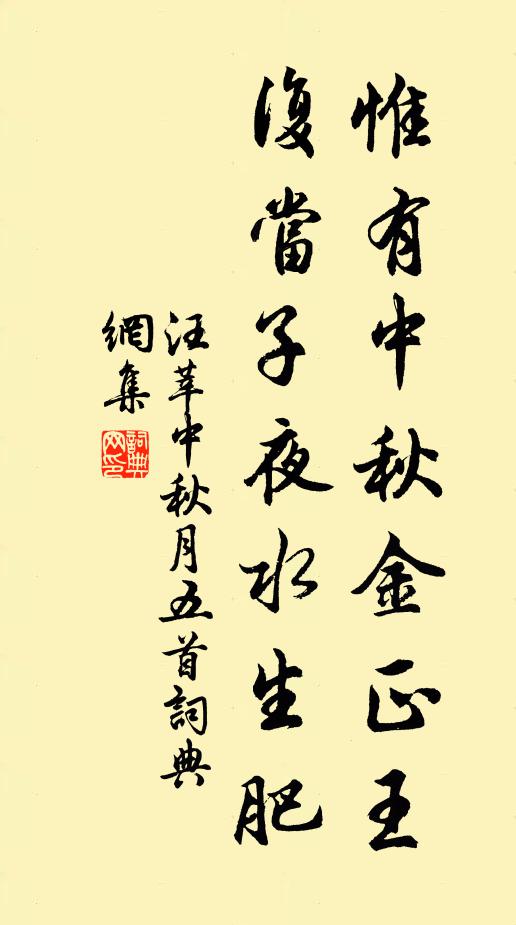 惟有中秋金正王
復當子夜水生肥
汪莘中秋月五首詞典
網集
詞典
网印